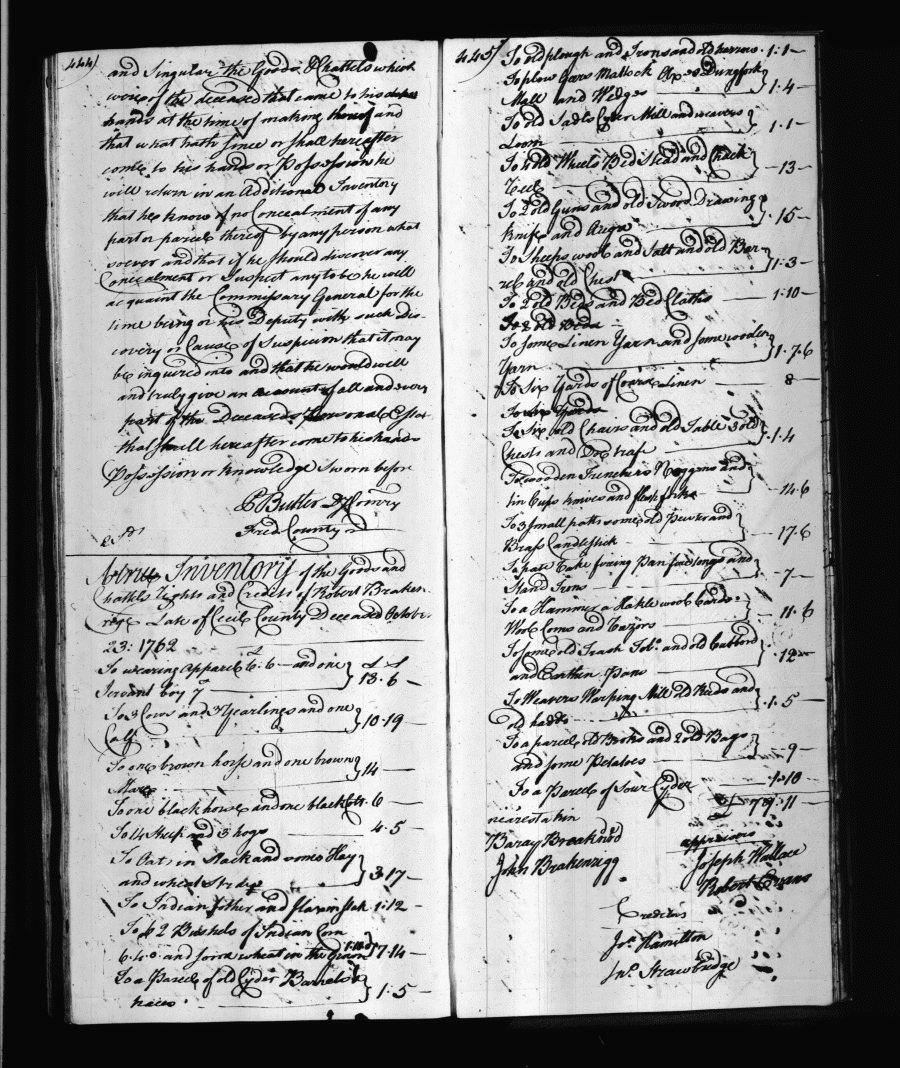 444)
and Singular the Goods & Chattels which
were of the deceased that came to his
hands at the time of making thereof and
that what hath since or shall hereafter
come to his hands or Possession he
will return in an Additional Inventory
that he knows of no Concealment of any
part or parcel thereof by any person what
soever and that if he should discover any
Concealment or Suspect any to be he will
acquaint the Commissary General for the
time being or his Deputy with such Dis-
covery or Cause of Suspicion that it may
be inquired into and that he would well
and truly give an account of all and every
part of the Deceaseds Personal Estate
that shall hereafter come to his hands
Possession or knowledge Sworn before
P Butler D Comry
Fred County
A true Inventory of the Goods and
Chattels rights and Credits of Robert Braken-
regg Late of Cecil County Deceased Octobr.
23: 1762
To wearing Apparel 6.6 — and one
Servant boy 7 — } 13.6 —
To 3 Cows and 3 Yearlings and one
Calf } 10.19 —
To one brown horse and one brown
Mare } 14 —
To one black horse and one black Colt 6 —
To 14 sheep and 3 hogs 4.5 —
To Oats in Stack and some Hay
and wheat } 3.17 —
To Indian fother and flax in stak 1.12 —
To 62 Bushels of Indian Corn
6.4.0 and some wheat in the Ground 1.10.0 } 7.14 —
To a Parcel of old Cyder Barrels &
} 1.5 —
445)
To old plough and Irons and old harrow . 1.1 —
To plow Gears Mattock Axes Dungfork
Mall and Wedges } 1.4 —
To old Cyder Mill and weavers
Loom } 1.1 —
To old Wheels Bed Stead and Chack
Reel } — 13 —
To 2 old Guns and old Sword Drawing
knife and Augur } . 15 —
To Sheeps wool and Salt and old Bar-
rel and old Chest } 1.3 —
To 2 old Beds and Bed Cloths — 1.10 —
To 2 old Beds —
To some Linen Yarn and some woolen
Yarn } 1.7.6
To Six Yards of Coars Linen — 8 —
To Six Yards
To Six old Chairs and old Table 3 old
Chests and Doe traf } . 1.4
To wooden Trenchers Noggens and
tin Cups knives and flesh forks } — 14.6
To 3 small pots some old Pewter and
Brass Candlestick } — 17.6
To pate Cake frying Pan fier tongs and
Stand Irons } — 7 —
To a Hammer a Hakle wool Cards
Wool Coms and Razors } — 11.6
To some old Trash Tobo. and old Cubbord
and Earthen Pans } . 12 —
To Weavers Warping Mill old Reeds and
old } . 1.5
To a parcel old Books and 2 old Bags
and some Potatoes } — 9 —
To a Parcel of Sour Cyder — 1.10
£ 79.11 —
nearest a kin
John Brakenregg
appraisers
Joseph Wallace
Robert Evans
Creditors
Jas. Hamilton
Jno. Strawbridge